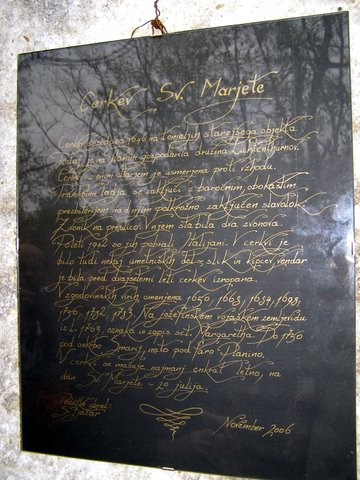 Cerkev Sv. Marjete
Cerkev zgrajena 1646 na temeljih starejšega objekta
Tedaj je na Planini gospodarila družina
Cerkev z enim oltarjem je usmerjena proti vzhodu.
ladja se zaključi z baročnim obokastim,
prezbiterijem na njem polkrožno zaključen slavolok.
Zvonik na preslico. V njem sta bila dva zvonova.
Poleti 1942 so jih pobrali Italijani. V cerkvi je
bilo tudi nekaj umetniških del - slik in kipcev, vendar
je bila pred dvajsetimi leti cerkev izropana.
V zgodovinskih virih omenjena 1650, 1663, 1654, 1693,
1756, 1782, 1783. Na jožefinskem vojaškem zemljevidu
iz l. 1763, oznaka in zapis sið. Margaretha. Do 1750
pod oskrbo Šmarij, nato pod faro Planino.
V cerkvi se mašuje najmanj enkrat letno, na
dan Sv. Marjete - 20 julija.
Podatke zbral:
November 2006